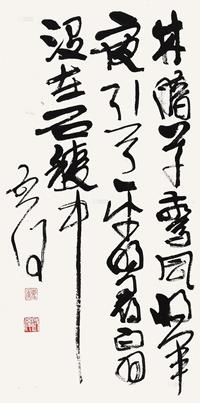 林暗草惊风将军
夜引弓平明寻白羽
没在石棱中